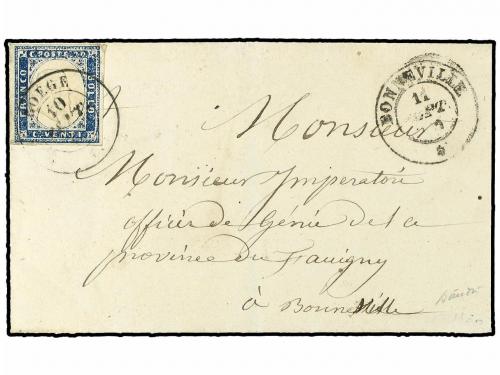 C. POSTE 20
FRANCO
BOLLO
C. VENTI
BOEGE
10
SEPT
BONNEVILLE
11
SEPT
Monsieur
Monsieur Imperatori
officier de Génie de la
province du Faucigny
à Bonneville